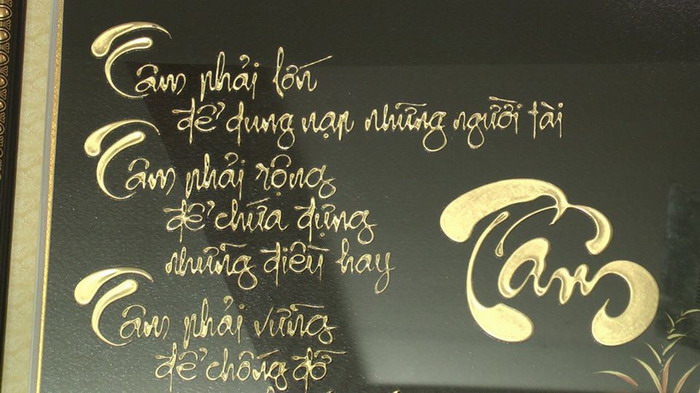 Tâm phải lớn
để dung nạp những người tài
Tâm phải rộng
để chứa đựng
những điều hay
Tâm phải vững
để chống đỡ
Tâm